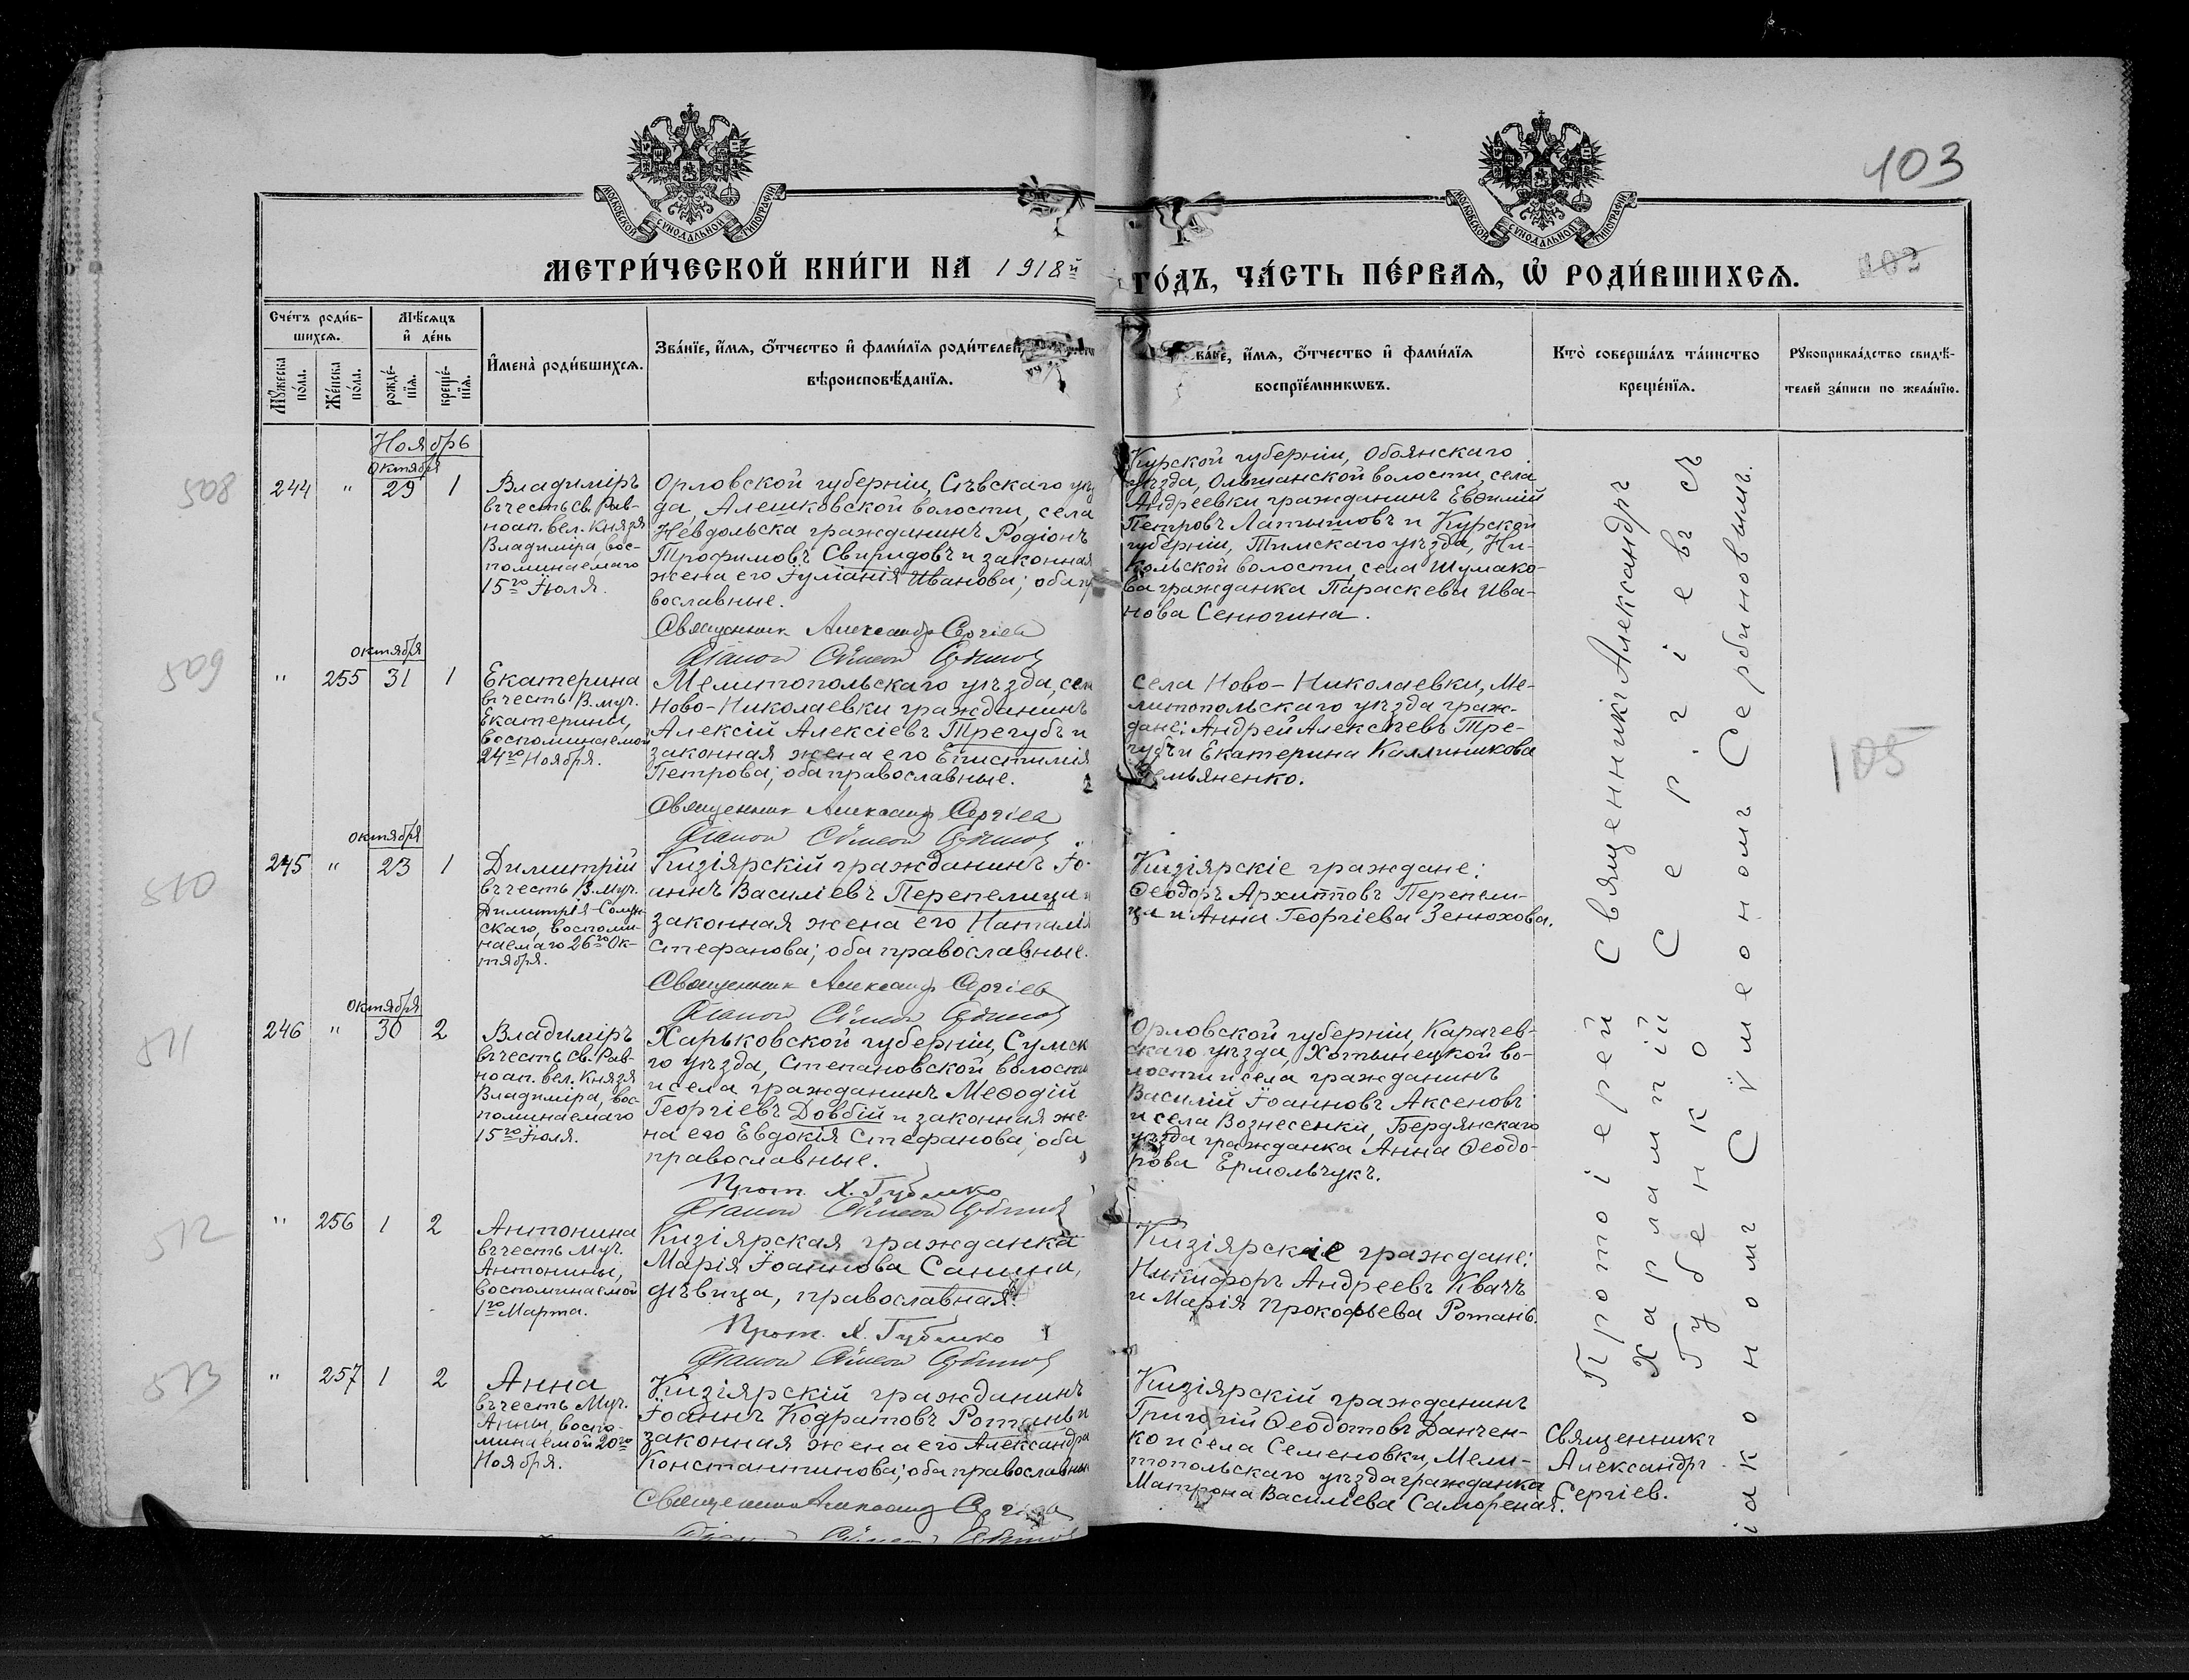 103
МОСКОВСКОЙ СѴНОДАЛЬНОЙ ТИПОГРАФІИ
МОСКОВСКОЙ СѴНОДАЛЬНОЙ ТИПОГРАФІИ
МЕТРИ́ЧЕСКОЙ КНИ́ГИ НА 1918й
ГО́ДЪ, ЧА́СТЬ ПЕ́РВАѦ, Ѡ РОДИ́ВШИХСѦ.
103
Сче́тъ роди́в-
шихсѧ.
Мѣ́сѧцъ
и҆ де́нь
Мꙋ́жеска
по́ла.
Же́нска
по́ла.
рожде́-
нїѧ.
креще́-
нїѧ.
И҆мена̀ роди́вшихсѧ.
Зва́нїе, и҆́мѧ, ѻ҆́тчество и҆ фами́лїѧ роди́телей,
вѣроисповѣ́данїѧ.
ва́нїе, и҆́мѧ, ѻ҆́тчество и҆ фами́лїѧ
воспрїе́мникѡвъ.
Кто̀ соверша́лъ та́инство
креще́нїѧ.
Рꙋкоприкла́дство свидѣ́-
телей за́писи по жела́нїю.
Ноябрь
508
октября
244 " 29 1
Владиміръ
въ честь св. Рав-
ноап. вел. Князя
Владиміра, вос-
поминаемаго
15го Іюля.
Орловской губерніи, Сѣвскаго уѣз
да, Алешковской волости, села
Невдольска гражданинъ Родіонъ
Трофимовъ Свиридовъ и законная
жена его Іуліанія Иванова; оба пр
вославные.
Священник Александр Сергіев
Діакон Сѵмеон Сербинов
Курской губерніи, Обоянскаго
уѣзда, Ольшанской волости, села
Андреевки гражданинъ Евѳимій
Петровъ Латышовъ и Курской
губерніи, Тимскаго уѣзда, Ни-
кольской волости, села Шумако-
ва гражданка Параскева Ива-
нова Сенюгина.
509
октября
" 255 31 1
Екатерина
въ честь В. муч.
Екатерины,
воспоминаемой
24го Ноября.
Мелитопольскаго уѣзда, села
Ново-Николаевки гражданинъ
Алексій Алексіевъ Трегубъ и
законная жена его Епистимія
Петрова; оба православные.
Священник Александр Сергіев
Діакон Сѵмеон Сербинов
села Ново-Николаевки, Ме-
литопольскаго уѣзда граж-
дане: Андрей Алексіевъ Тре-
губъ и Екатерина Каллиникова
Демьяненко.
105
510
октября
245 " 23 1
Димитрій
въ честь В. муч.
Димитрія Солун-
скаго, воспоми-
наемаго 26го Ок-
тября.
Кизіярскій гражданинъ Іо-
аннъ Василіевъ Перепелица и
законная жена его Наталія
Стефанова; оба православные.
Священник Александр Сергіев
Діакон Сѵмеон Сербинов
Кизіярскіе граждане:
Ѳеодоръ Архипповъ Перепели-
ца и Анна Георгіева Зенюхова.
511
октября
246 " 30 2
Владиміръ
въ честь св. Рав-
ноап. вел. Князя
Владиміра, вос-
поминаемаго
15го Іюля.
Харьковской губерніи, Сумска
го уѣзда, Степановской волости
и села гражданинъ Меѳодій
Георгіевъ Довбій и законная же-
на его Евдокія Стефанова; оба
православные.
Прот. Х. Губенко
Діакон Сѵмеон Сербинов
Орловской губерніи, Карачев-
скаго уѣзда, Хотынецкой во-
лости и села гражданинъ
Василій Іоанновъ Аксеновъ
и села Вознесенки, Бердянскаго
уѣзда гражданка Анна Ѳеодо-
рова Ермольчукъ.
512
" 256 1 2
Антонина
въ честь Муч.
Антонины,
воспоминаемой
1го Марта.
Кизіярская гражданка
Марія Іоаннова Санина,
дѣвица, православная.
Прот. Х. Губенко
Діакон Сѵмеон Сербинов
Кизіярскіе граждане:
Никифоръ Андреевъ Квачъ
и Марія Прокофьева Ротань.
513
" 257 1 2
Анна
въ честь Муч.
Анны, воспо-
минаемой 20го
Ноября.
Кизіярскій гражданинъ
Іоаннъ Кодратовъ Ротань и
законная жена его Александра
Константинова; оба православные
Священник Александр Сергіев
Діакон Сѵмеон Сербинов
Кизіярскій гражданинъ
Григорій Ѳеодотовъ Данчен-
ко и села Семеновки, Мели-
топольскаго уѣзда гражданка
Матрона Василіева Самореная.
Протоіерей Священникъ Александръ
Харлампій Сергіевъ съ
Губенко
іакономъ Сѵмеономъ Сербиновымъ.
Священникъ
Александръ
Сергіев.